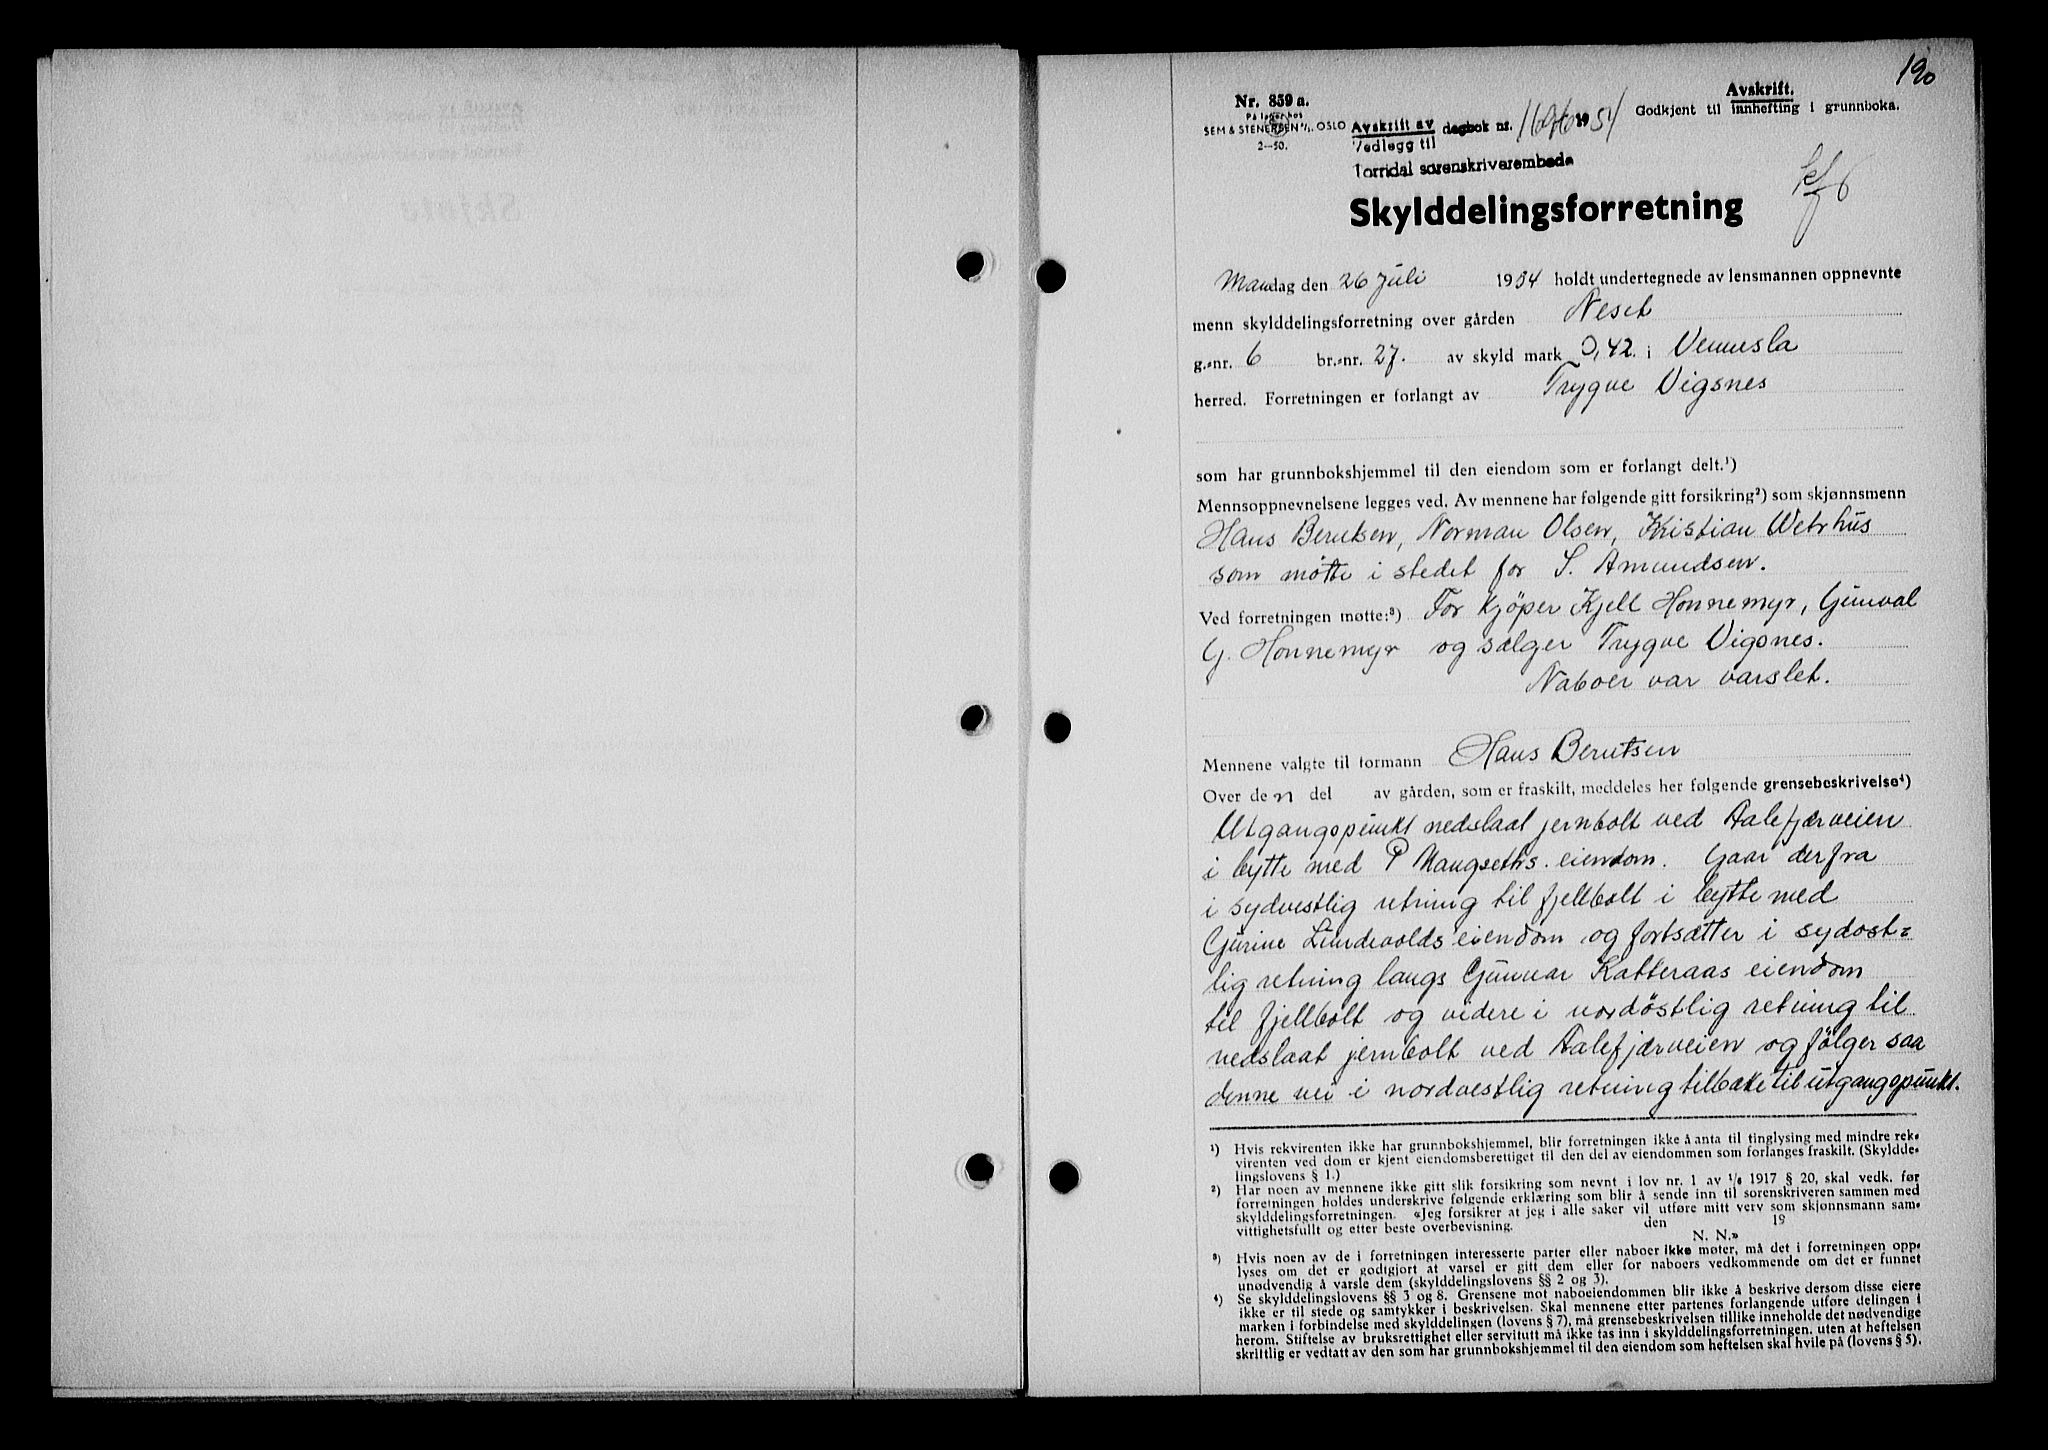 190
Nr. 859 a.
På lager hos
SEM & STENERSEN A/S, OSLO
2—50.
Avskrift.
Godkjent til innhefting i grunnboka.
Avskrift av
Vedlegg til
dagbok nr. 1954
Torridal sorenskriverembede
Skylddelingsforretning
Mandag den 26 Juli 1954 holdt undertegnede av lensmannen oppnevnte
menn skylddelingsforretning over gården Neset
g.-nr. 6 br.-nr. 27. av skyld mark 0,42. i Vennesla
herred. Forretningen er forlangt av Trygve Vigsnes
som har grunnbokshjemmel til den eiendom som er forlangt delt.¹)
Mennsoppnevnelsene legges ved. Av mennene har følgende gitt forsikring²) som skjønnsmenn
Hans Berntsen, Norman Olsen, Kristian Wetrhus
som møtte i stedet for S. Amundsen.
Ved forretningen møtte:³) For kjøper Kjell Honnemyr, Gunval
G. Honnemyr og sælger Trygve Vigsnes.
Naboer var varslet.
Mennene valgte til formann Hans Berntsen
Over den del av gården, som er fraskilt, meddeles her følgende grensebeskrivelse⁴)
Utgangspunkt nedslaat jernbolt ved Aalefjærveien
i bytte med P Haugseths eiendom. Gaar derfra
i sydvestlig retning til fjellbolt i bytte med
Gurine Lundevolds eiendom og fortsætter i sydøst-
lig retning langs Gunnar Katteraas eiendom
til fjellbolt og videre i nordøstlig retning til
nedslaat jernbolt ved Aalefjærveien og følger saa
denne vei i nordvestlig retning tilbake til utgangspunkt.
¹) Hvis rekvirenten ikke har grunnbokshjemmel, blir forretningen ikke å anta til tinglysing med mindre rek-
virenten ved dom er kjent eiendomsberettiget til den del av eiendommen som forlanges fraskilt. (Skyldde-
lingslovens § 1.)
²) Har noen av mennene ikke gitt slik forsikring som nevnt i lov nr. 1 av 1/6 1917 § 20, skal vedk. før
forretningen holdes underskrive følgende erklæring som blir å sende inn til sorenskriveren sammen med
skylddelingsforretningen. «Jeg forsikrer at jeg i alle saker vil utføre mitt verv som skjønnsmann sam-
vittighetsfullt og etter beste overbevisning. den 19
N. N.»
³) Hvis noen av de i forretningen interesserte parter eller naboer ikke møter, må det i forretningen opp-
lyses om det er godtgjort at varsel er gitt dem eller for naboers vedkommende om det er funnet
unødvendig å varsle dem (skylddelingslovens §§ 2 og 3).
⁴) Se skylddelingslovens §§ 3 og 8. Grensene mot naboeiendommen blir ikke å beskrive dersom disse eiere
ikke er til stede og samtykker i beskrivelsen. Skal mennene etter partenes forlangende utføre delingen i
marken i forbindelse med skylddelingen (lovens § 7), må grensebeskrivelsen tillike inneholde det nødvendige
herom. Stiftelse av bruksrettighet eller servitutt må ikke tas inn i skylddelingsforretningen, uten at heftelsen
skriftlig er vedtatt av den som har grunnbokshjemmel til den eiendom som heftelsen skal hvile på (lovens § 5).